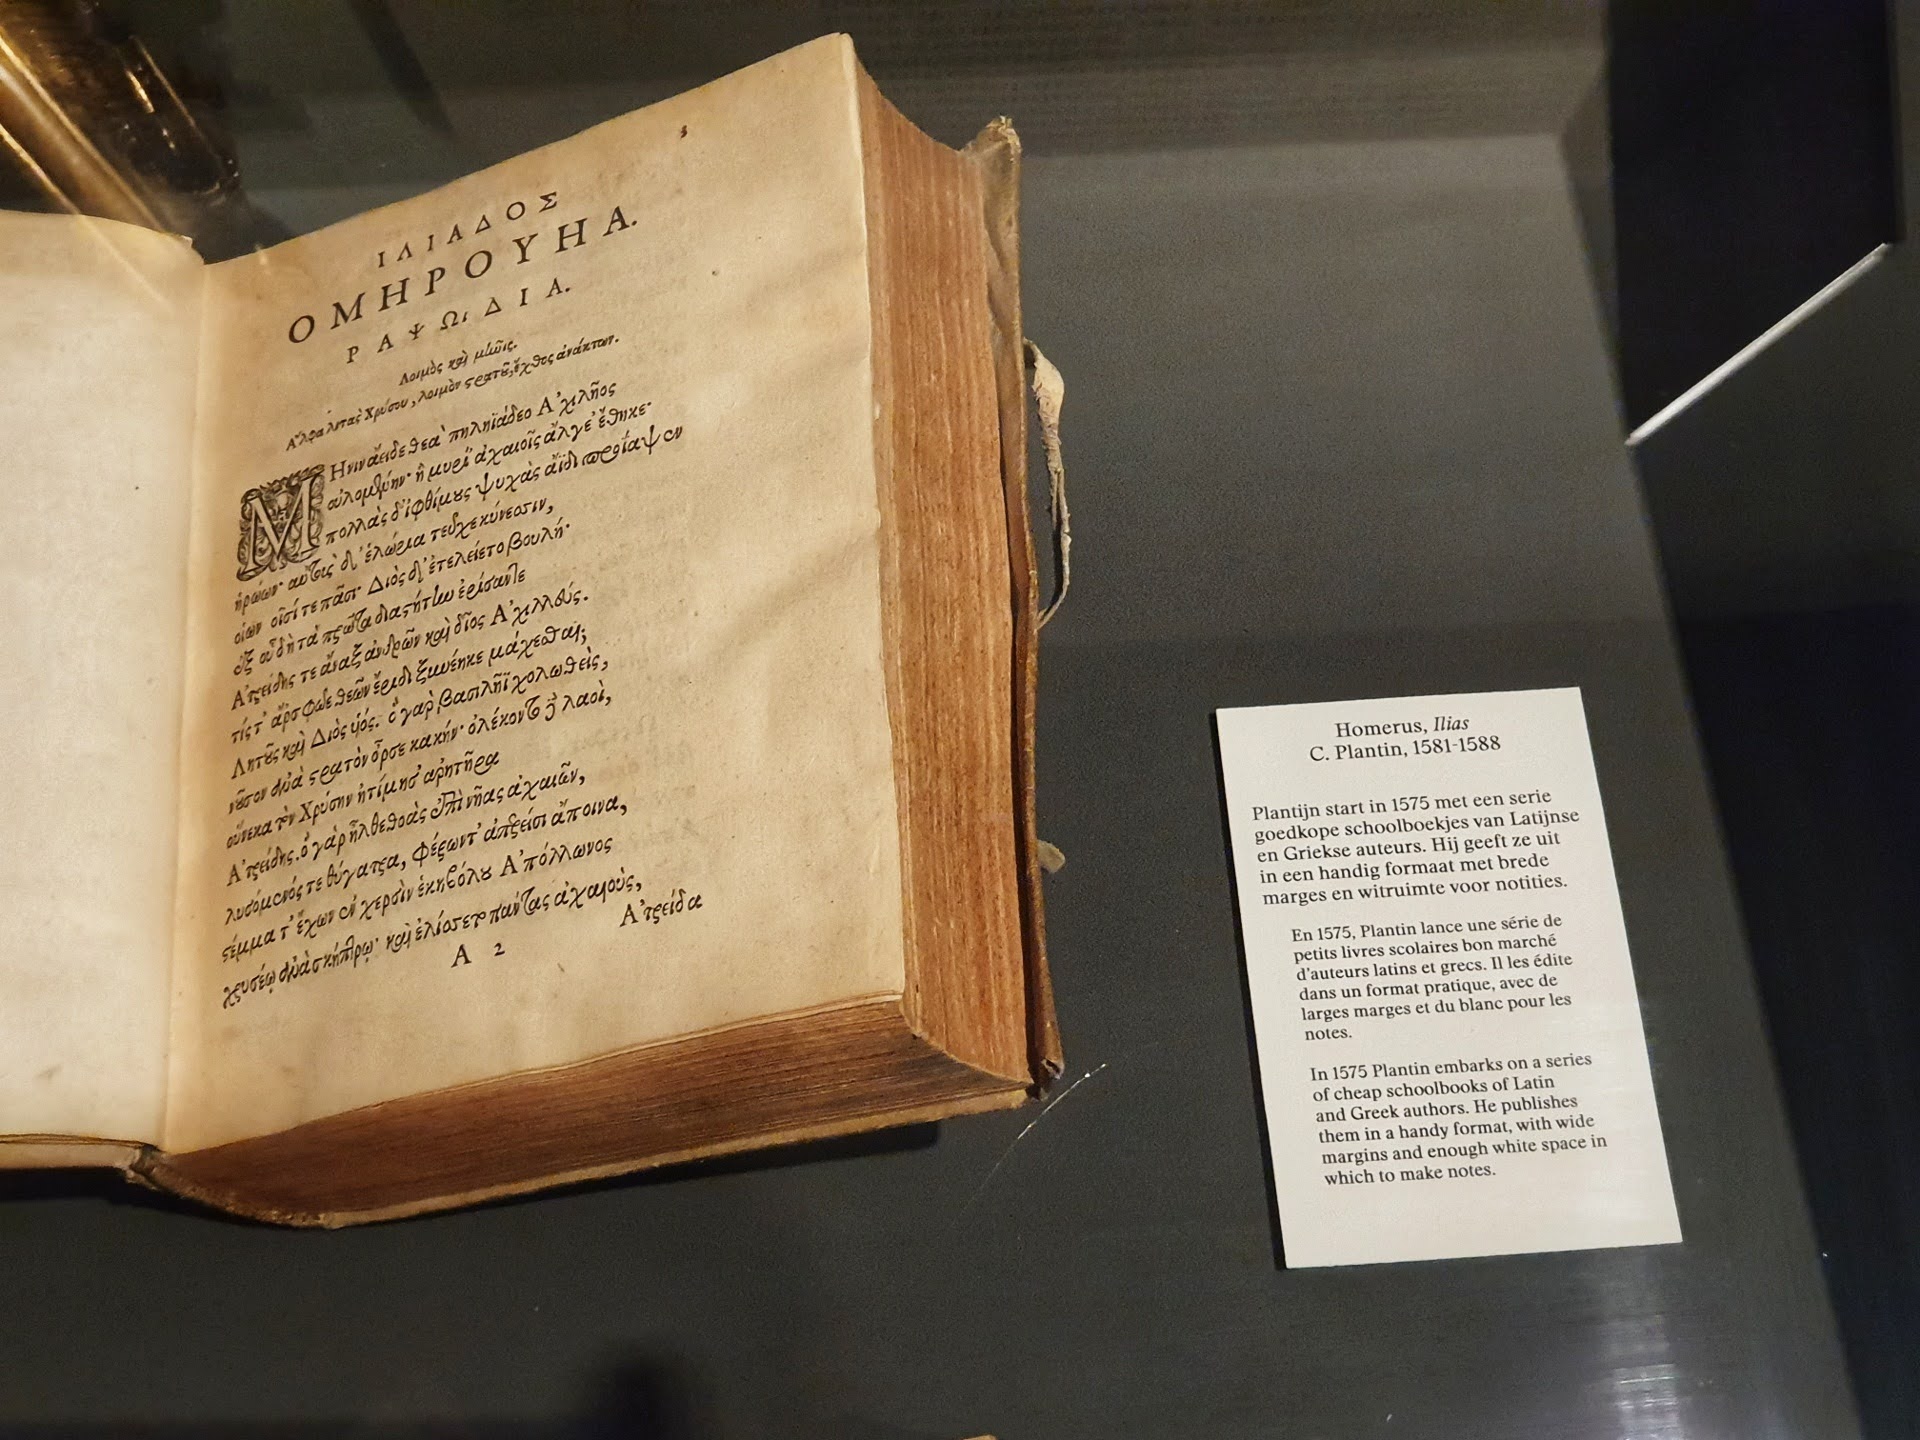 3
ΙΛΙΑΔΟΣ
ΟΜΗΡΟΥ Η Α.
ΡΑΨΩΙΔΙΑ.
Λοιμὸς καὶ μῆνις.
Α῎λφα λιτὰς Χρύσου, λοιμὸν στρατοῦ, ἔχθος ἀνάκτων.
ΜΗνιν ἄειδε θεὰ πηληϊάδεω Α᾿χιλῆος
οὐλομένην· ἣ μυρί᾿ ἀχαιοῖς ἄλγε᾿ ἔθηκε·
πολλὰς δ᾿ ἰφθίμους ψυχὰς ἄϊδι προΐαψεν
ἡρώων· αὐτοὺς δὲ ἑλώρια τεῦχε κύνεσσιν,
οἰωνοῖσί τε πᾶσι· Διὸς δ᾿ ἐτελείετο βουλή·
ἐξ οὗ δὴ τὰ πρῶτα διαστήτην ἐρίσαντε
Α᾿τρείδης τε ἄναξ ἀνδρῶν καὶ δῖος Α᾿χιλλεύς.
τίς τ᾿ ἄρ σφωε θεῶν ἔριδι ξυνέηκε μάχεσθαι;
Λητοῦς καὶ Διὸς υἱός. ὁ γὰρ βασιλῆϊ χολωθεὶς,
νοῦσον ἀνὰ στρατὸν ὦρσε κακήν· ὀλέκοντο δὲ λαοὶ,
οὕνεκα τὸν Χρύσην ἠτίμησ᾿ ἀρητῆρα
Α᾿τρείδης. ὁ γὰρ ἦλθε θοὰς ἐπὶ νῆας ἀχαιῶν,
λυσόμενός τε θύγατρα, φέρων τ᾿ ἀπερείσι ἄποινα,
στέμμα τ᾿ ἔχων ἐν χερσὶν ἑκηβόλου Α᾿πόλλωνος
χρυσέῳ ἀνὰ σκήπτρῳ· καὶ ἐλίσσετο πάντας ἀχαιοὺς,
Α 2 Α᾿τρείδα
Homerus, Ilias
C. Plantin, 1581-1588
Plantijn start in 1575 met een serie
goedkope schoolboekjes van Latijnse
en Griekse auteurs. Hij geeft ze uit
in een handig formaat met brede
marges en witruimte voor notities.
En 1575, Plantin lance une série de
petits livres scolaires bon marché
d'auteurs latins et grecs. Il les édite
dans un format pratique, avec de
larges marges et du blanc pour les
notes.
In 1575 Plantin embarks on a series
of cheap schoolbooks of Latin
and Greek authors. He publishes
them in a handy format, with wide
margins and enough white space in
which to make notes.